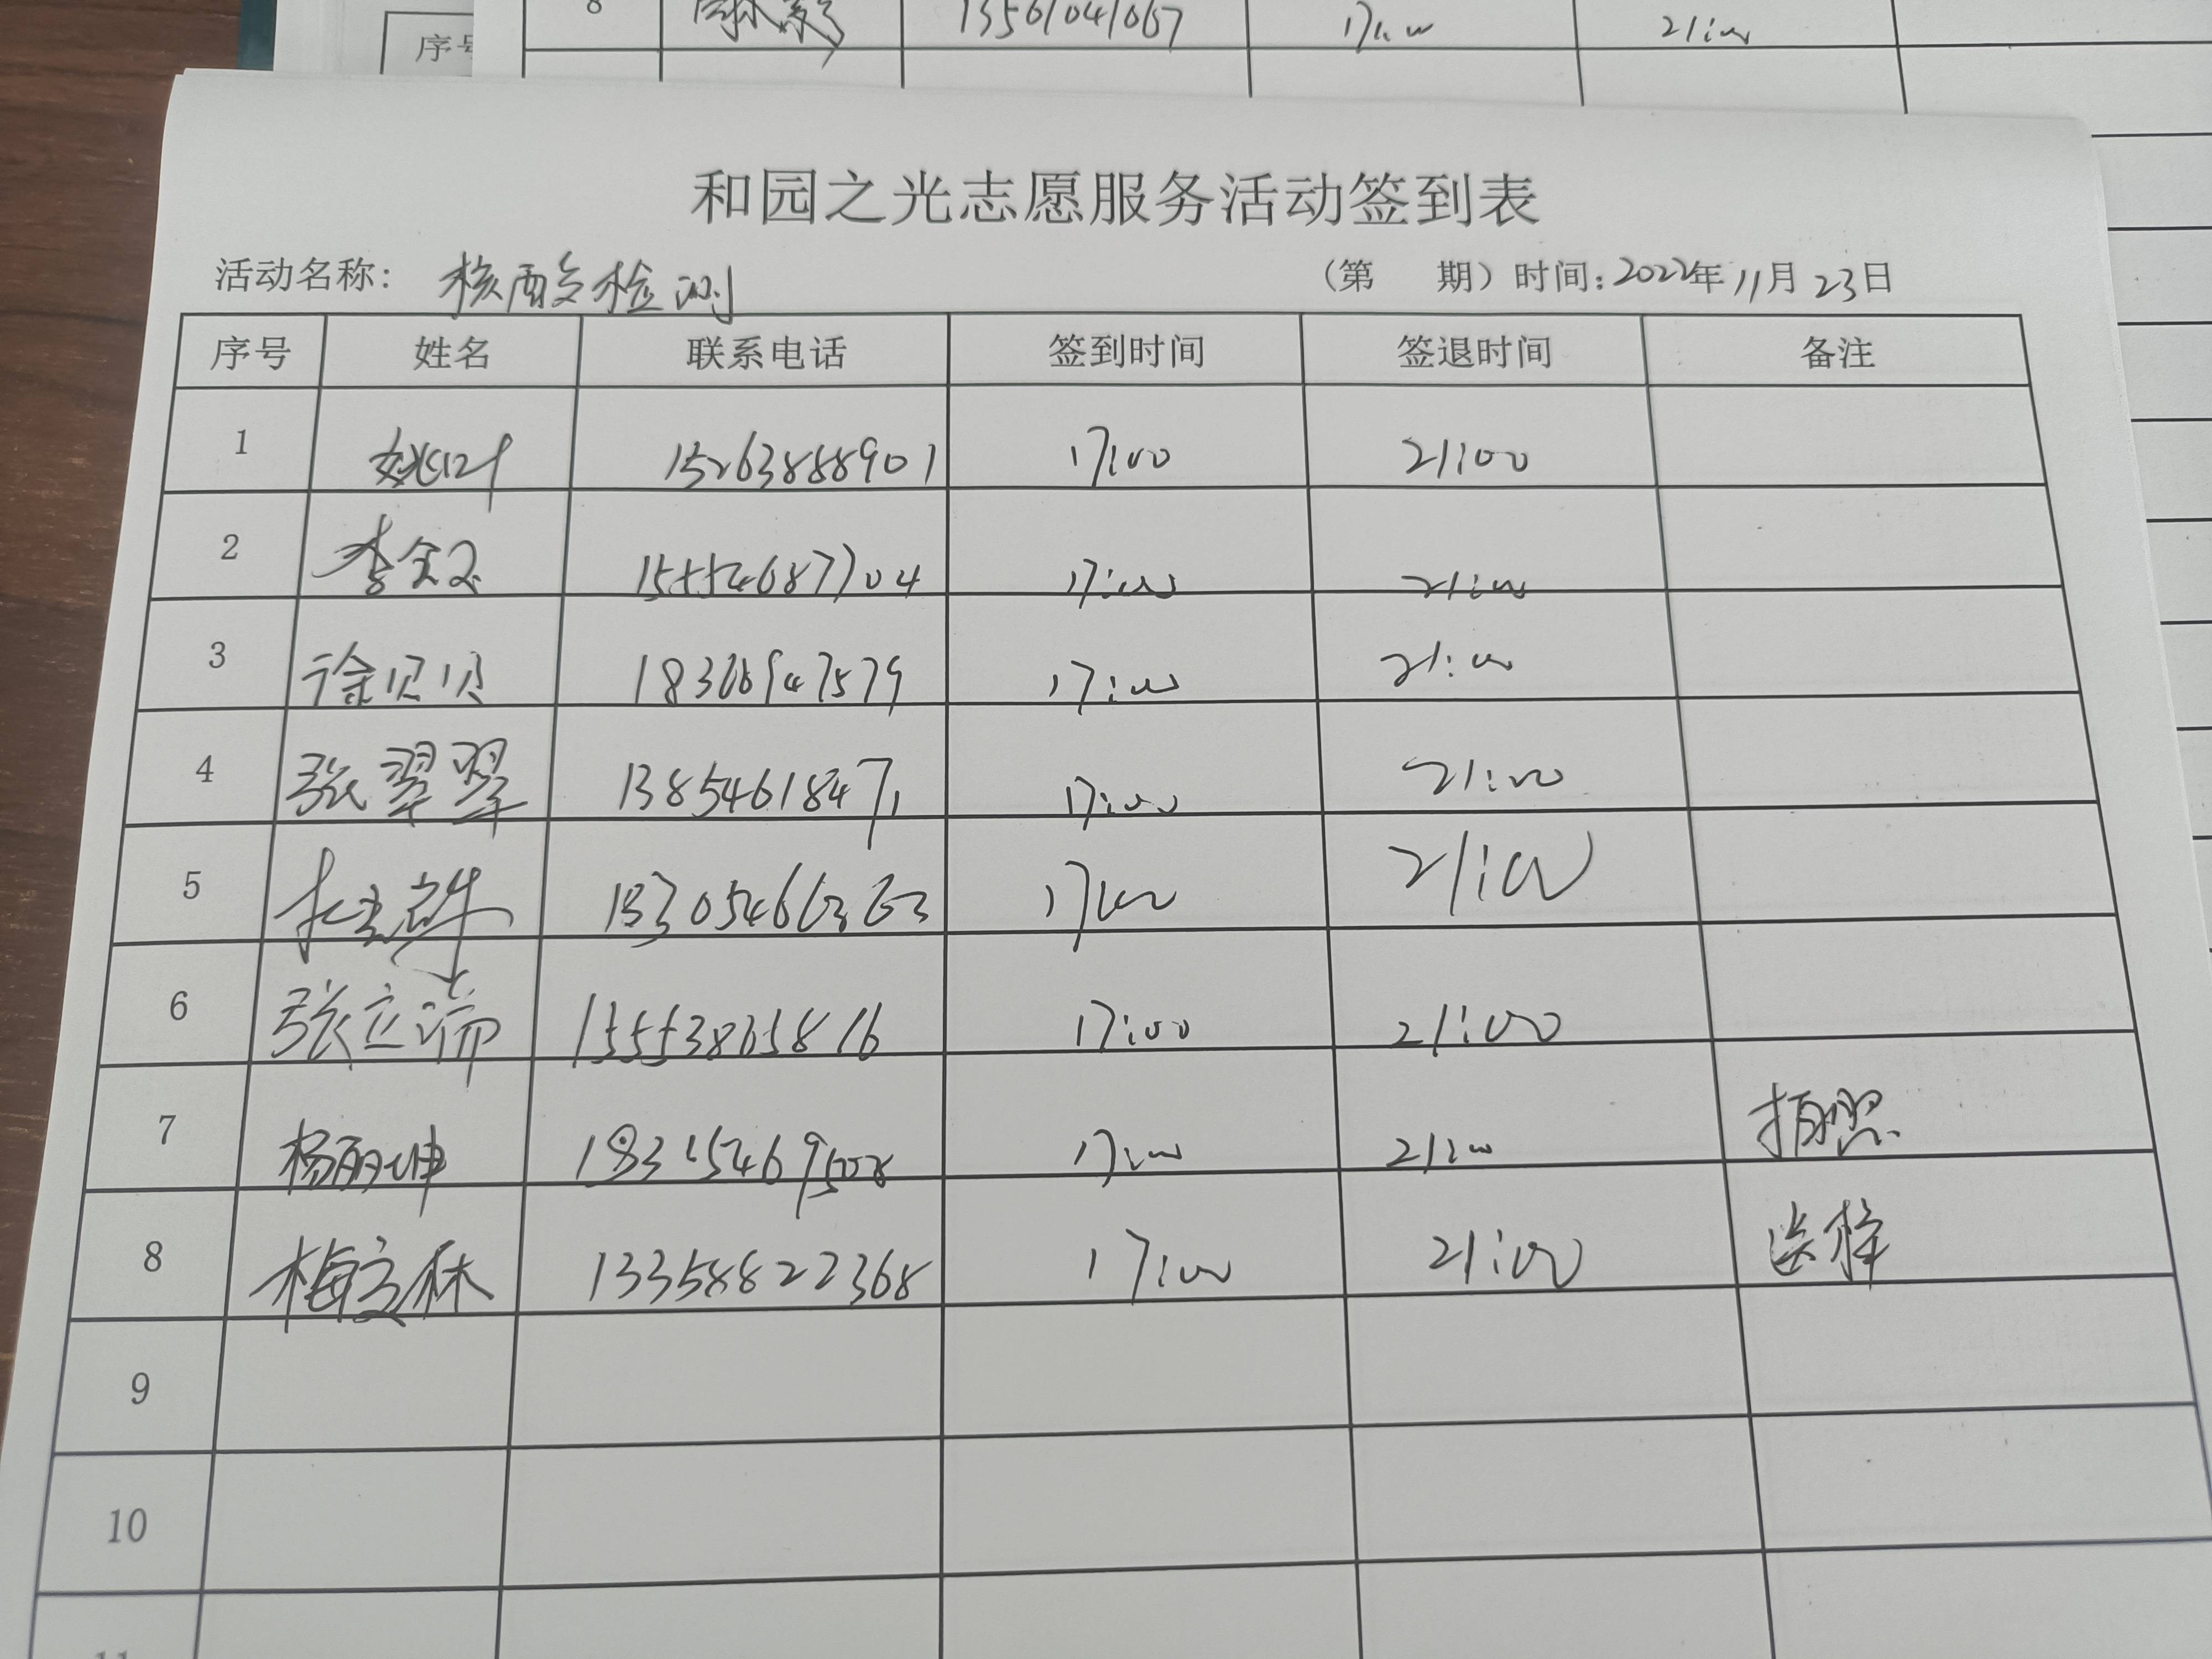 序号
8 13561041067 17:00 21:00
和园之光志愿服务活动签到表
活动名称: 核酸检测 (第 期) 时间:2022年11月23日
序号 姓名 联系电话 签到时间 签退时间 备注
1 姚叶 15263888901 17:00 21:00
2 李金玉 15554687704 17:00 21:00
3 徐贝贝 18366947579 17:00 21:00
4 张翠翠 13854618471 17:00 21:00
5 17:00 21:00
6 张立瑞 15553865816 17:00 21:00
7 杨丽坤 17:00 21:00 拍照
8 梅立林 13358822368 17:00 21:00 送样
9
10
11